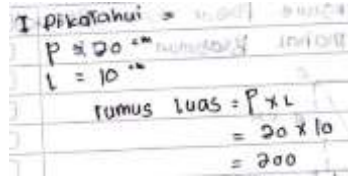 I Diketahui =
P = 20 cm
L = 10 cm
rumus luas = P x L
= 20 x 10
= 200